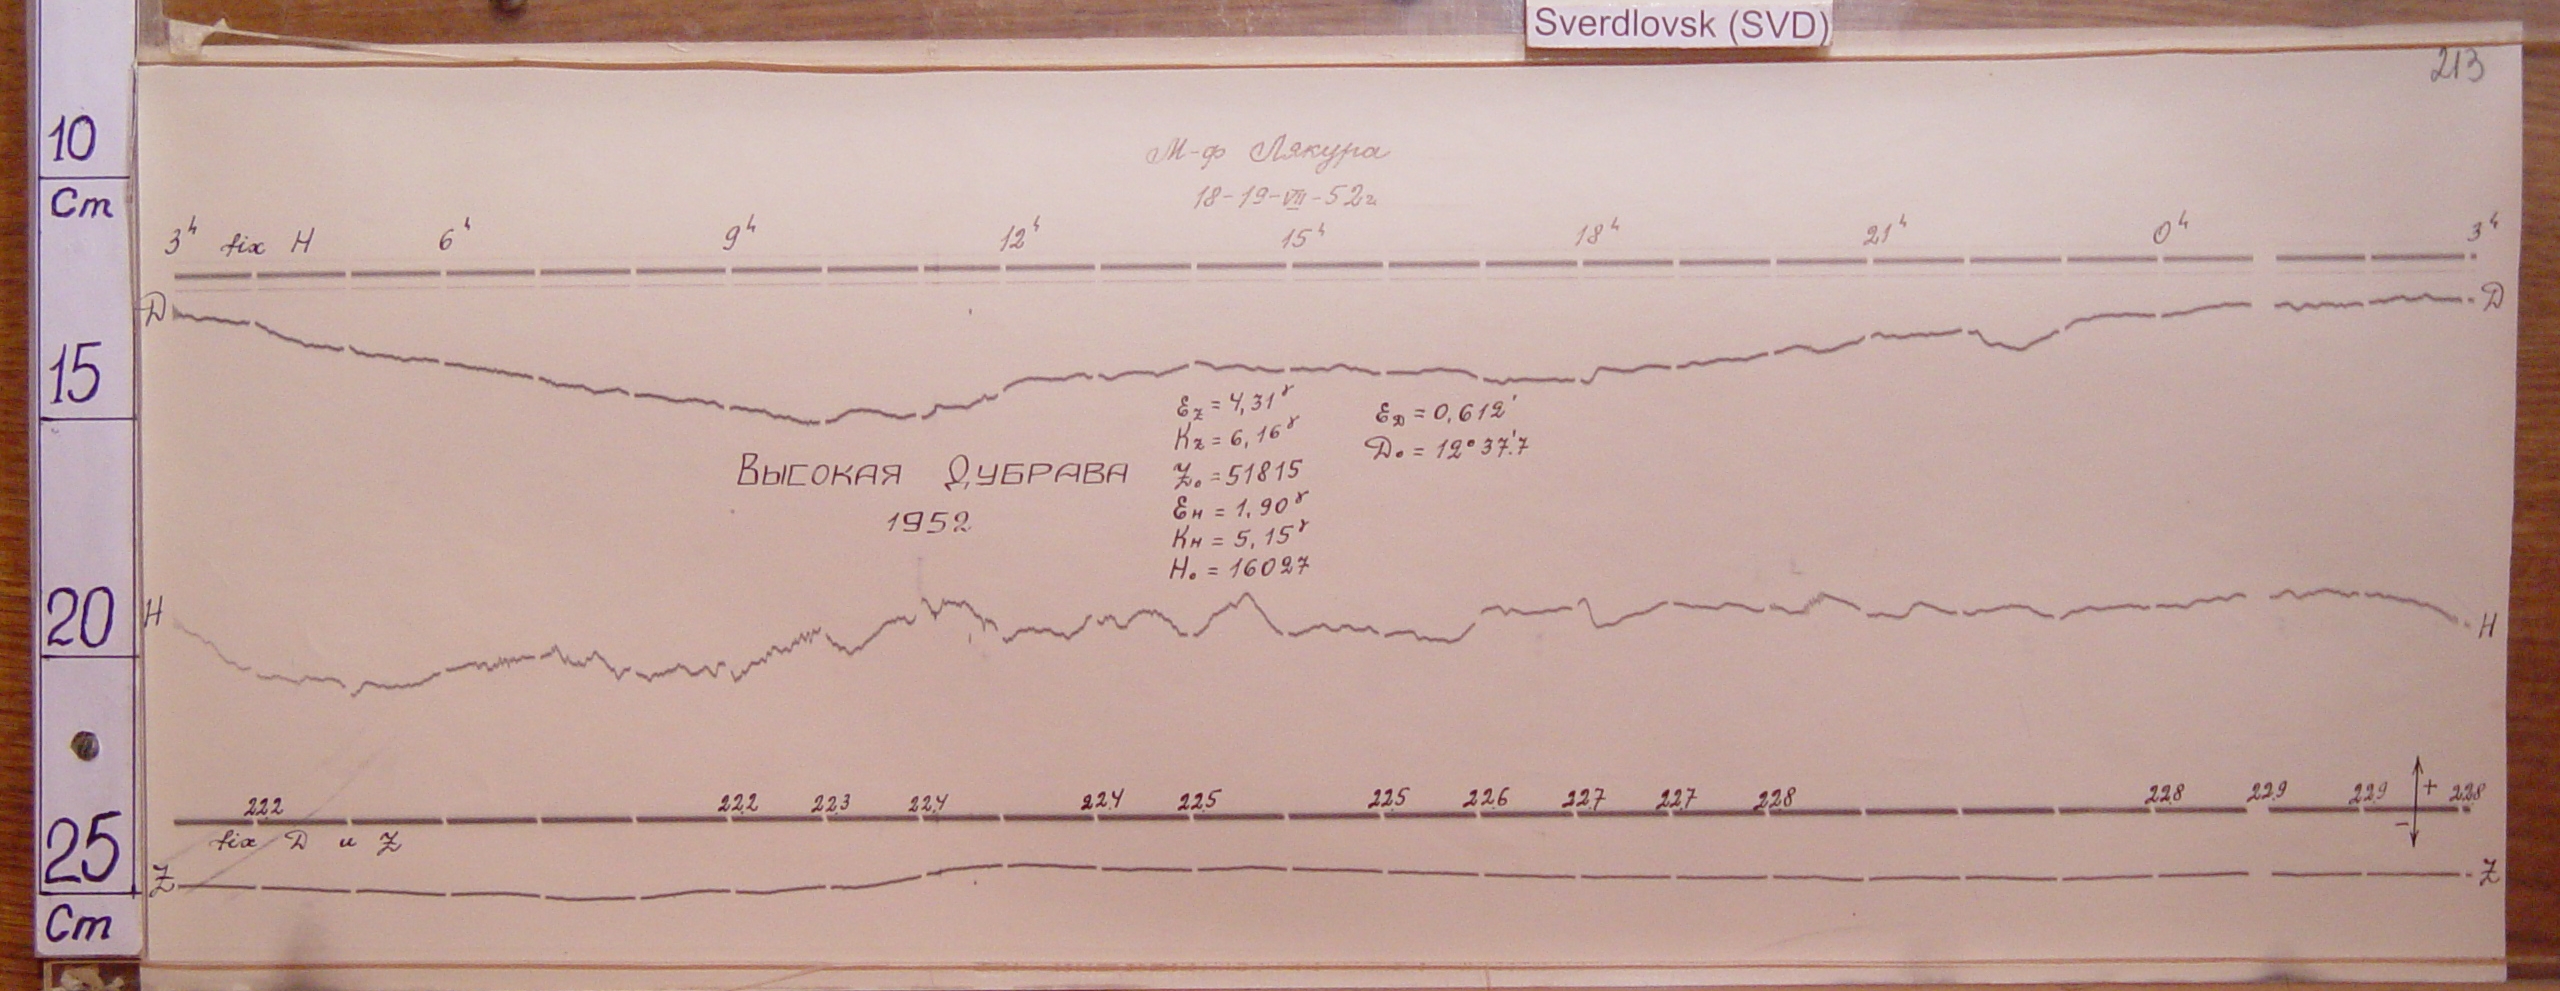 Sverdlovsk (SVD)
213
М-ф Лякура
18-19-VII-52г.
3ʰ fix H 6ʰ 9ʰ 12ʰ 15ʰ 18ʰ 21ʰ 0ʰ 3ʰ
10
Cm
15
20
25
Cm
D D
Ez = 4,31γ
Kz = 6,16γ
Z₀ = 51815
Eн = 1,90γ
Kн = 5,15γ
H₀ = 16027
ED = 0,612'
D₀ = 12°37'.7
Высокая Дубрава
1952
H H
222 222 223 224 224 225 225 226 227 227 228 228 229 229 228
+
-
fix D и Z
Z Z